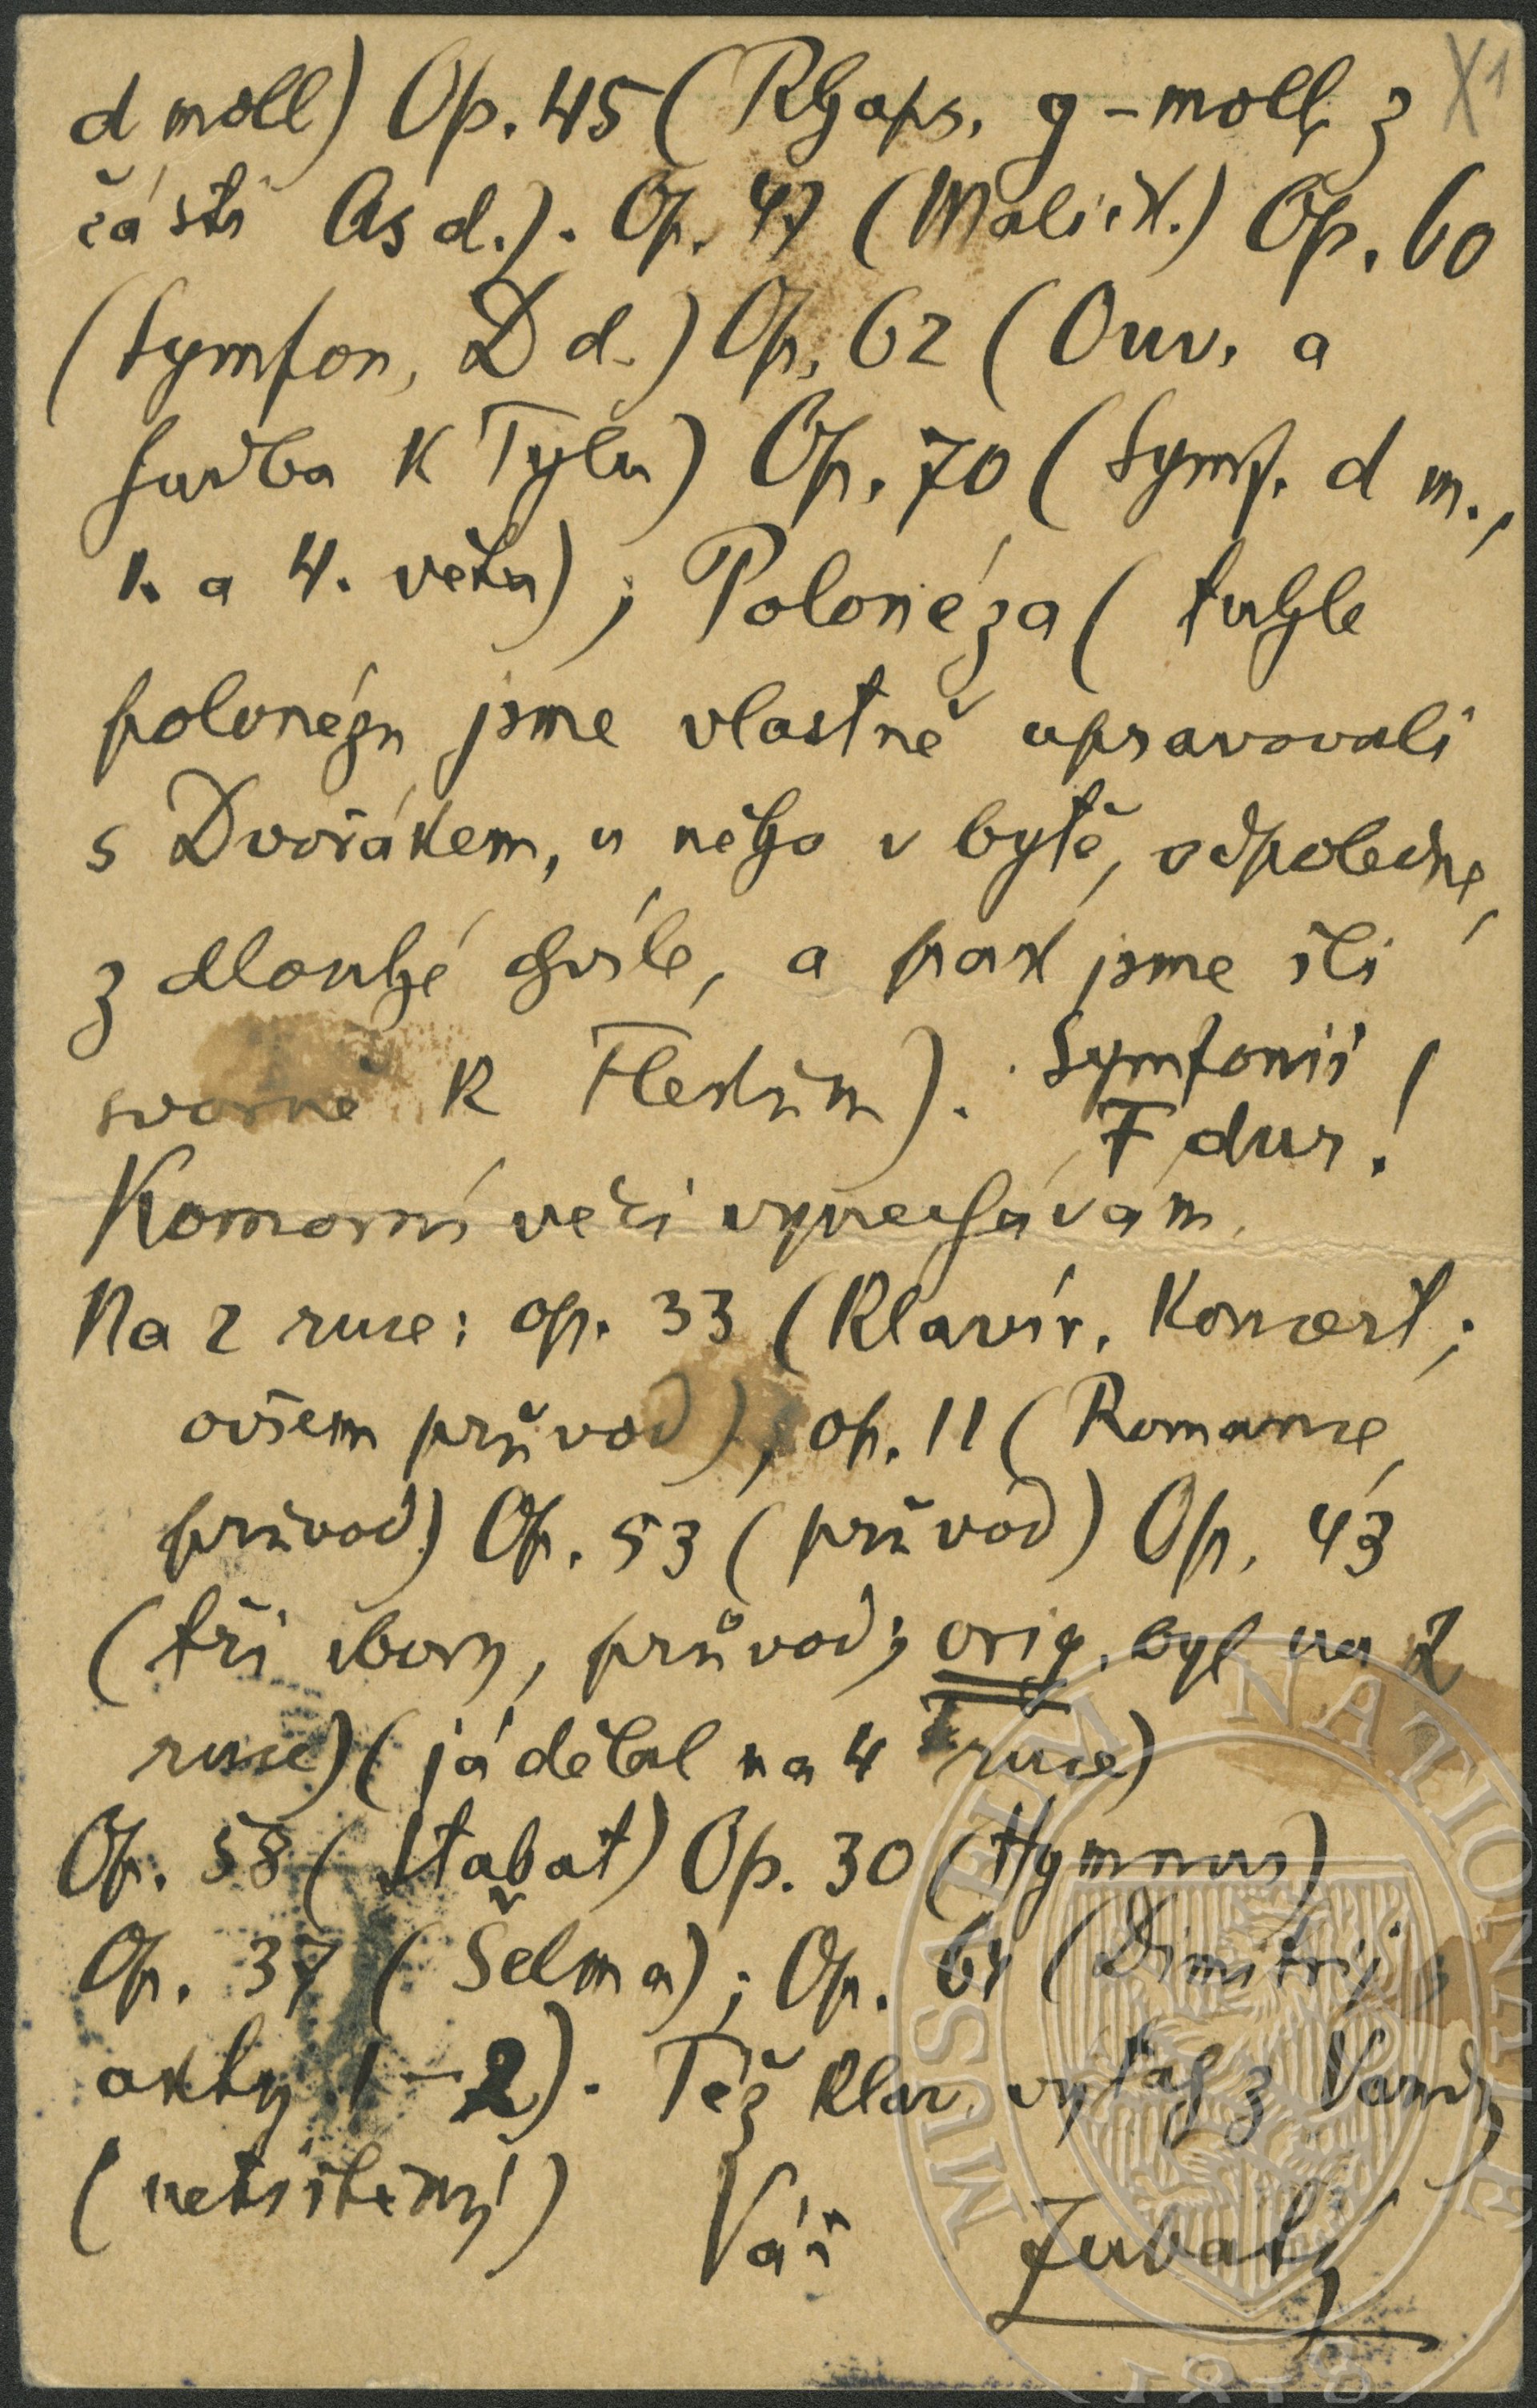 X1
d moll) Op. 45 (Rhaps. g-moll, z
části As d.). Op. 47 (Maličk.) Op. 60
(Symfon. D d.) Op. 62 (Ouv. a
hudba k Tylu) Op. 70 (Symf. d m.,
1. a 4. věta); Polonéza (tuhle
polonézu jsme vlastně upravovali
s Dvořákem, u něho v bytě, odpoledne,
z dlouhé chvíle, a pak jsme šli
svorně k Flekům). Symfonii
F dur!
Komorní věci vynechávám.
Na 2 ruce: op. 33 (Klavír. koncert;
ovšem průvod), op. 11 (Romance,
průvod) Op. 53 (průvod) Op. 43
(tři sbory, průvod; orig. byl na 2
ruce) (já dělal na 4 ruce)
Op. 58 (Stabat) Op. 30 (Hymnus)
Op. 37 (Šelma); Op. 64 (Dimitrij,
akty 1–2). Též klav. výtah z Vandy
(netištěný) Váš Zubatý
MUSAEUM NATIONALE
1818